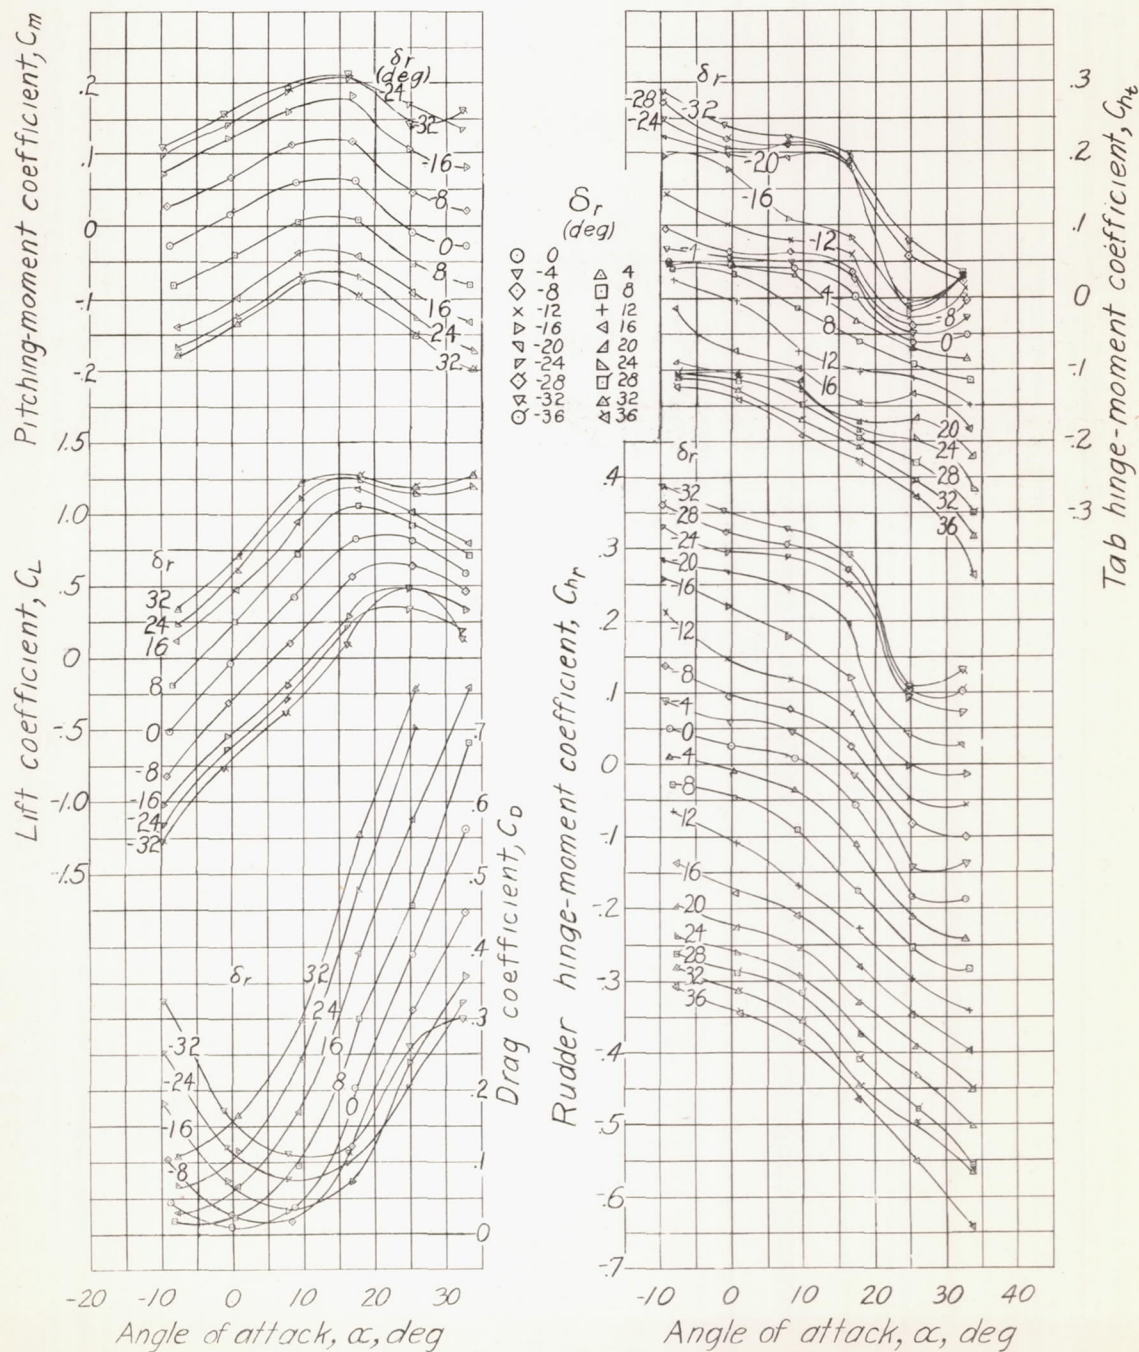 Pitching-moment coefficient, Cm
.2
.1
0
-.1
-.2
δr
(deg)
-24
-32
-16
-8
0
8
16
24
32
Lift coefficient, CL
1.5
1.0
.5
0
-.5
-1.0
-1.5
δr
32
24
16
8
0
-8
-16
-24
-32
Drag coefficient, CD
.7
.6
.5
.4
.3
.2
.1
0
δr
32
24
16
8
0
-32
-24
-16
-8
-20 -10 0 10 20 30
Angle of attack, α, deg
δr
(deg)
0
-4 4
-8 8
-12 12
-16 16
-20 20
-24 24
-28 28
-32 32
-36 36
Tab hinge-moment coefficient, Cht
.3
.2
.1
0
-.1
-.2
-.3
δr
-28
-32
-24
-20
-16
-12
4
8
-8
0
12
16
20
24
28
32
36
Rudder hinge-moment coefficient, Chr
.4
.3
.2
.1
0
-.1
-.2
-.3
-.4
-.5
-.6
-.7
δr
-32
28
-24
-20
-16
-12
-8
-4
0
4
8
12
16
20
24
28
32
36
-10 0 10 20 30 40
Angle of attack, α, deg